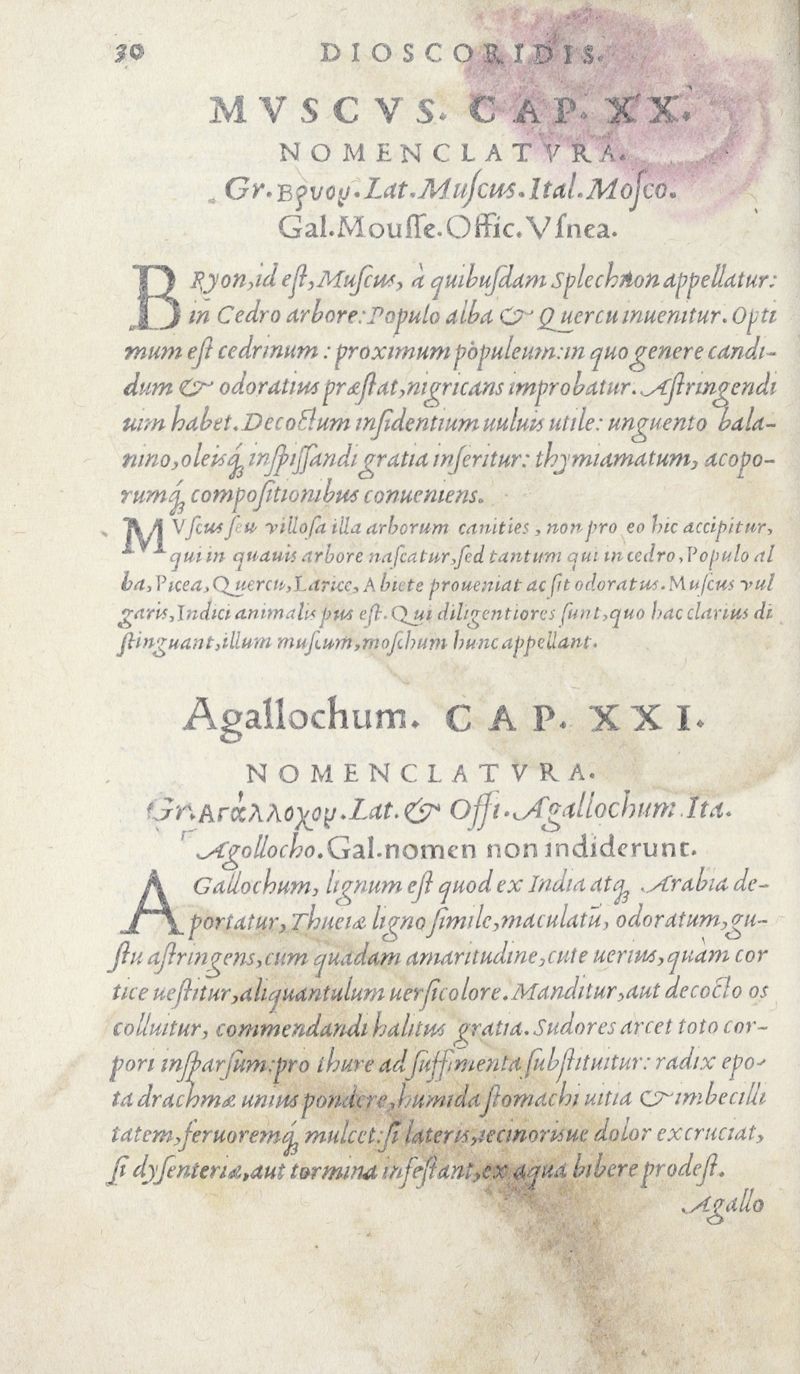 30 DIOSCORIDIS.
MVSCVS. CAP. XX.
NOMENCLATVRA.
Gr. Βρυον. Lat. Muſcus. Ital. Moſco.
Gal. Mouſſe. Offic. Vſnea.
BRyon, id eſt, Muſcus, à quibuſdam Splechnon appellatur:
in Cedro arbore: Populo alba & Quercu inuenitur. Opti
mum eſt cedrinum: proximum pòpuleum: in quo genere candi-
dum & odoratius præſtat, nigricans improbatur. Aſtringendi
uim habet. Decoctum inſidentium uuluis utile: unguento bala-
nino, oleisq́ꝫ inſpiſſandi gratia inſeritur: thymiamatum, acopo-
rumq́ꝫ compoſitionibus conueniens.
MVſcus ſeu villoſa illa arborum canities, non pro eo hic accipitur,
qui in quauis arbore naſcatur, ſed tantum qui in cedro, Populo al
ba, Picea, Quercu, Larice, Abiete proueniat ac ſit odoratus. Muſcus vul
garis, Indici animalis pus eſt. Qui diligentiores ſunt, quo hac clarius di
ſtinguant, illum muſcum, moſchum hunc appellant.
Agallochum. CAP. XXI.
NOMENCLATVRA.
Gr. Αγάλλοχον. Lat. & Offi. Agallochum. Ita.
Agollocho. Gal. nomen non indiderunt.
AGallochum, lignum eſt quod ex India atqꝫ Arabia de-
portatur, Thueiæ ligno ſimile, maculatũ, odoratum, gu-
ſtu aſtringens, cum quadam amaritudine, cute uerius, quàm cor
tice ueſtitur, aliquantulum uerſicolore. Manditur, aut decocto os
colluitur, commendandi halitus gratia. Sudores arcet toto cor-
pori inſparſum: pro thure ad ſuffimenta ſubſtituitur: radix epo-
ta drachmæ unius pondere, humida ſtomachi uitia & imbecilli
tatem, feruoremq́ꝫ mulcet: ſi lateris, iecinorisue dolor excruciat,
ſi dyſenteriæ, aut tormina infeſtant, ex aqua bibere prodeſt.
Agallo